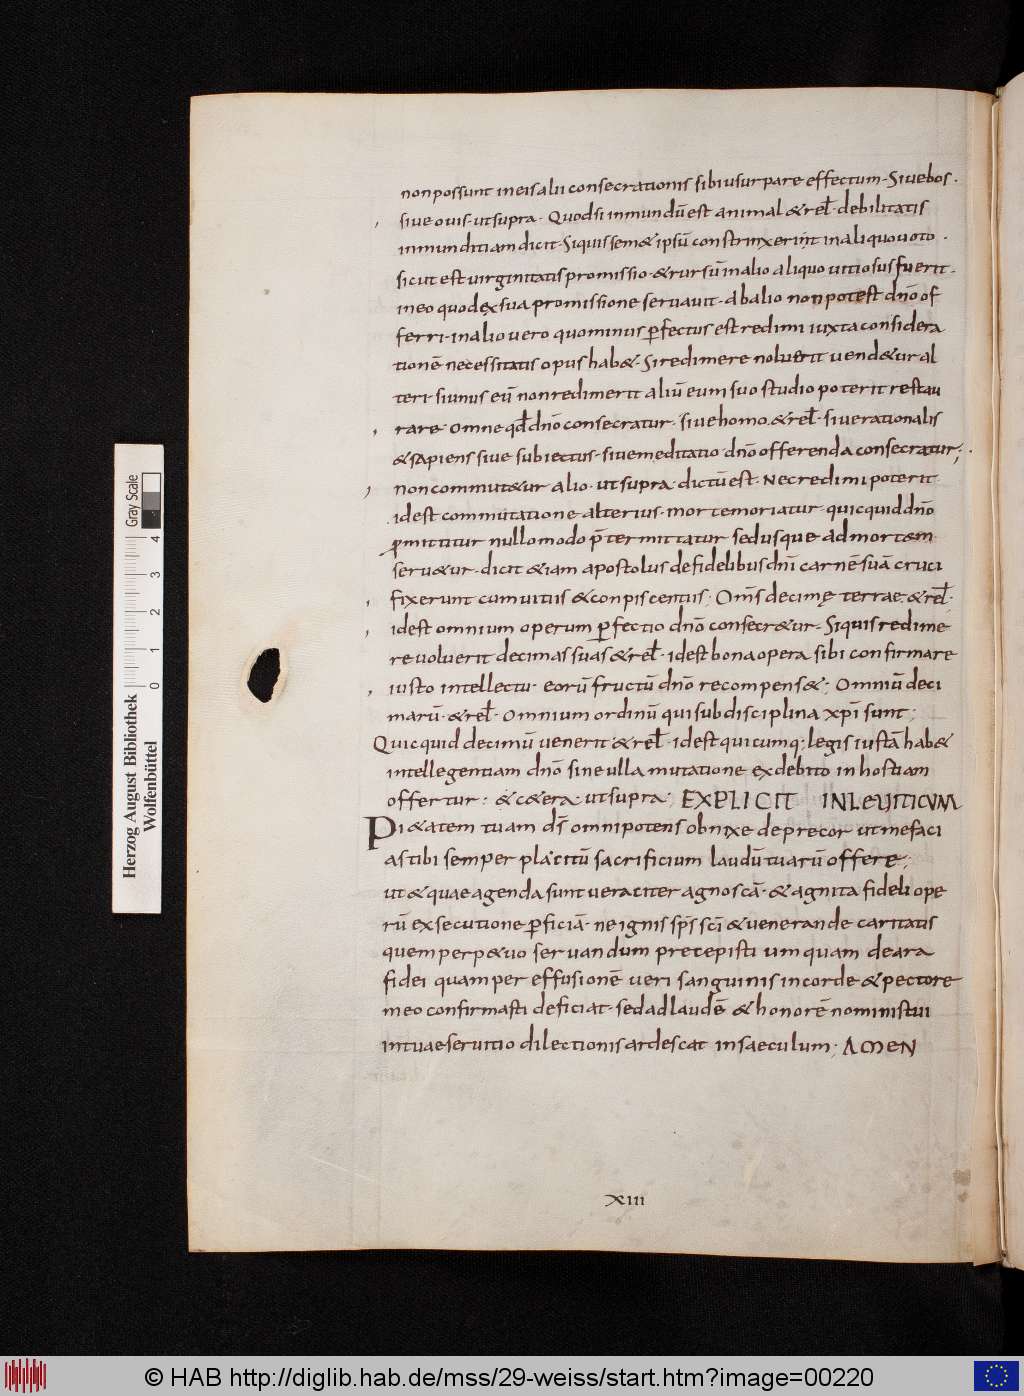 non possunt in eis alii consecrationis sibi usurpare effectum. Siue bos.
siue ouis. ut supra. Quodsi inmundū est animal & rel̄. debilitatis
inmunditiam dicit. Siquis sem& ipsū constrinxerint in aliquo uoto.
sicut est uirginitatis promissio. & rursū in alio aliquo uitiosus fuerit.
in eo quod ex sua promissione seruauit. ab alio non potest dn̄o of
ferri. in alio uero quo minus ꝑfectus est redimi iuxta considera
tionē necessitatis opus hab&. Si redimere noluerit uend&ur al
teri. si unus eū non redimerit aliū eum suo studio poterit restau
rare. Omne qd̄ dn̄o consecratur. siue homo. & rel̄. siue rationalis
& sapiens siue subiectus. siue meditatio dn̄o offerenda consecratur;.
non commut&ur alio. ut supra dictū est. Nec redimi poterit.
idest commutatione alterius. morte moriatur. quicquid dn̄o
ꝓmittitur nullo modo p̄termittatur sed usque ad mortem
seru&ur. dicit &iam apostolus de fidelibus dn̄i carnē suā cruci
fixerunt cum uitiis & conpiscentiis; Om̄s decimę terrae. & rel̄.
idest omnium operum ꝑfectio dn̄o consecr&ur. Siquis redime
re uoluerit decimas suas & rel̄. idest bona opera sibi confirmare
iusto intellectu. eorū fructū dn̄o recompens&; Omniū deci
marū. & rel̄. Omnium ordinū qui sub disciplina xp̄i sunt;
Quicquid decimū uenerit & rel̄. idest quicumq; legis iustā hab&
intellegentiam dn̄o sine ulla mutatione ex debito in hostiam
offertur: & c&era ut supra; EXPLICIT IN LEUITICUM
Pi&atem tuam d̄s omnipotens obnixe deprecor ut me faci
as tibi semper placitū sacrificium laudū tuarū offere;
ut & quae agenda sunt ueraciter agnoscā. & agnita fideli ope
rū exsecutione ꝑficiā. ne ignis sp̄s sc̄i & uenerande caritatis
quem perp&uo seruandum precepisti umquam de ara
fidei quam per effusionē ueri sanguinis in corde & pectore
meo confirmasti deficiat. sed ad laudē & honorē nominis tui
in tuae seruitio dilectionis ardescat in saeculum; AMEN
XIII
Herzog August Bibliothek
Wolfenbüttel
0 1 2 3 4
Gray Scale
© HAB http://diglib.hab.de/mss/29-weiss/start.htm?image=00220